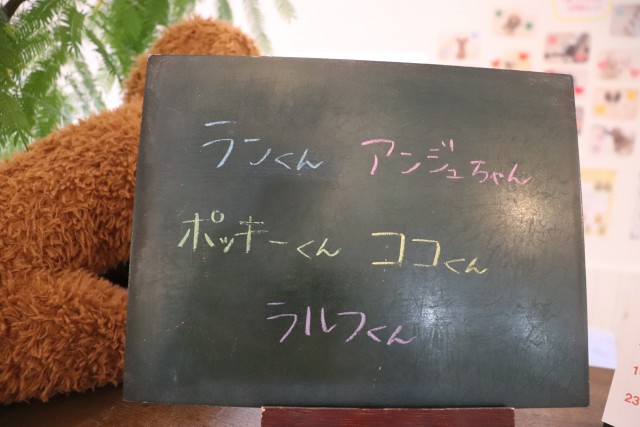 ランくん アンジュちゃん
ポッキーくん ココくん
ラルフくん
1
23